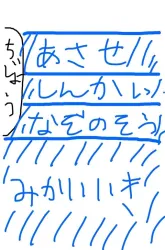 ちじょう
あさせ
しんかい
なぞのそう
みかいいき